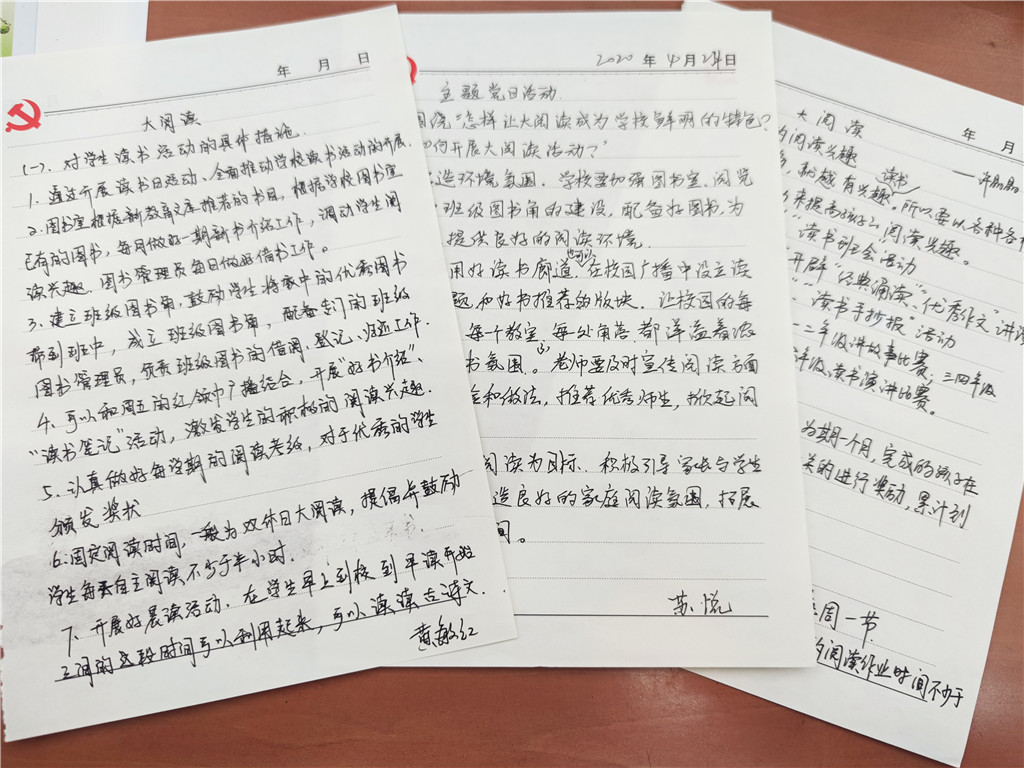 年 月 日
大阅读
(一)、对学生读书活动的具体措施.
1、通过开展读书日活动、全面推动学校读书活动的开展.
2、图书室根据新教育文库推荐的书目,根据学校图书室
已有的图书,每月做好一期新书介绍工作,调动学生阅
读兴趣.图书管理员每日做好借书工作。
3、建立班级图书角,鼓励学生将家中的优秀图书
带到班中,成立班级图书角,配备专门的班级
图书管理员,负责班级图书的借阅、登记、归还工作.
4、可以和周五的红领巾广播结合,开展“好书介绍”、
“读书笔记”活动,激发学生的积极的阅读兴趣.
5、认真做好每学期的阅读考级,对于优秀的学生
颁发奖状
6.固定阅读时间,一般为双休日大阅读,提倡并鼓励
学生每天自主阅读不少于半小时.
7、开展好晨读活动、在学生早上到校到早读开始
之间的这段时间可以利用起来,可以读读古诗文.
黄敏红
2020 年 4 月 24 日
主题党日活动.
围绕“怎样让大阅读成为学校鲜明的特色?
如何开展大阅读活动?”
造环境氛围.学校要加强图书室、阅览
班级图书角的建设,配备好图书,为
提供良好的阅读环境.
用好读书廊道,在校园广播中设立读
和好书推荐的版块.让校园的每
每个教室、每处角落,都洋溢着浓
书氛围。老师要及时宣传阅读方面
和做法,推荐优秀师生,掀起阅
阅读为目标、积极引导家长与学生
造良好的家庭阅读氛围,拓展
间。
苏悦
年 月
大阅读
阅读兴趣
越有兴趣。所以要以各种各
读书
来提高孩子的阅读兴趣。
读书班会活动
开辟“经典诵读”“优秀作文”讲
“读书手抄报”活动
一二年级讲故事比赛,三四年级
年级读书演讲比赛。
为期一个月,完成的孩子在
关的进行奖励,累计到
周一节
阅读作业时间不少于